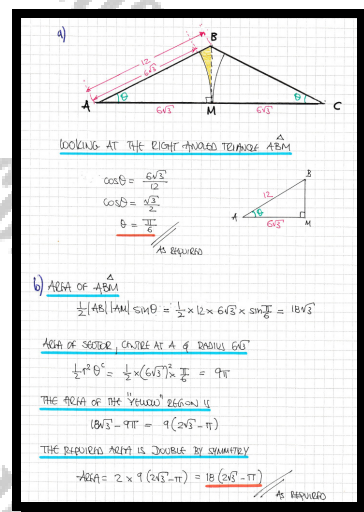 a)
B
12
6√3
A θ θ C
6√3 M 6√3
LOOKING AT THE RIGHT ANGLED TRIANGLE ABM
cosθ = 6√3/12
cosθ = √3/2
θ = π/6
AS REQUIRED
B
12
A θ
6√3 M
b) AREA OF ABM
1/2|AB||AM| sinθ = 1/2 × 12 × 6√3 × sin π/6 = 18√3
AREA OF SECTOR, CENTRE AT A & RADIUS 6√3
1/2 r²θᶜ = 1/2 × (6√3)² × π/6 = 9π
THE AREA OF THE "YELLOW" REGION IS
18√3 - 9π = 9(2√3 - π)
THE REQUIRED AREA IS DOUBLE BY SYMMETRY
AREA = 2 × 9(2√3 - π) = 18(2√3 - π)
AS REQUIRED